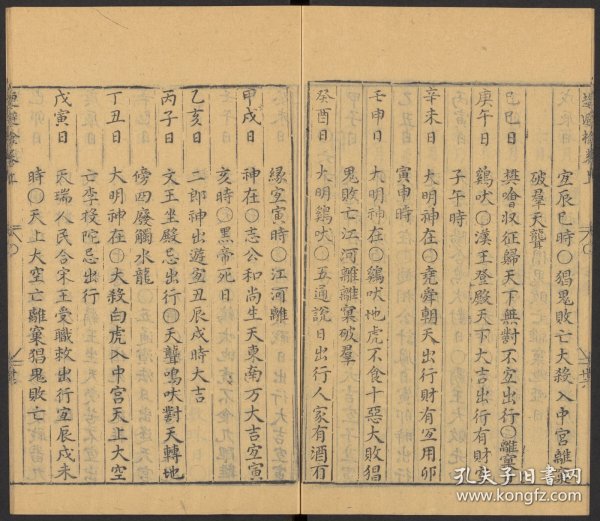 宜辰巳時〇猖鬼敗亡大殺入中宮離巢
破羣天聾
己巳日 樊噲収征歸天下無對不宜出行〇離窠
庚午日 鷄吠〇漢王登殿天下大吉出行有財宜
子午時
辛未日 大明神在〇堯舜朝天出行財有宜用卯
寅申時
壬申日 大明神在〇鷄吠地虎不食十惡大敗猖
鬼敗亡江河離離窠破羣
癸酉日 大明鷄吠〇五通説日出行人家有酒有
縁宜寅時〇江河離
甲戌日 神在〇志公和尚生天東南方大吉宜寅
亥時〇黒帝死日
乙亥日 二郎神出遊宜丑辰戌時大吉
丙子日 文王坐殿忌出行〇天聾鳴吠對天轉地
傍四廢觸水龍
丁丑日 大明神在〇大殺白虎入中宮天上大空
亡李授院忌出行
戊寅日 天瑞人民合宋王受職救出行宜辰戌未
時〇天上大空亡離窠猖鬼敗亡
孔夫子旧书网
www.kongfz.com